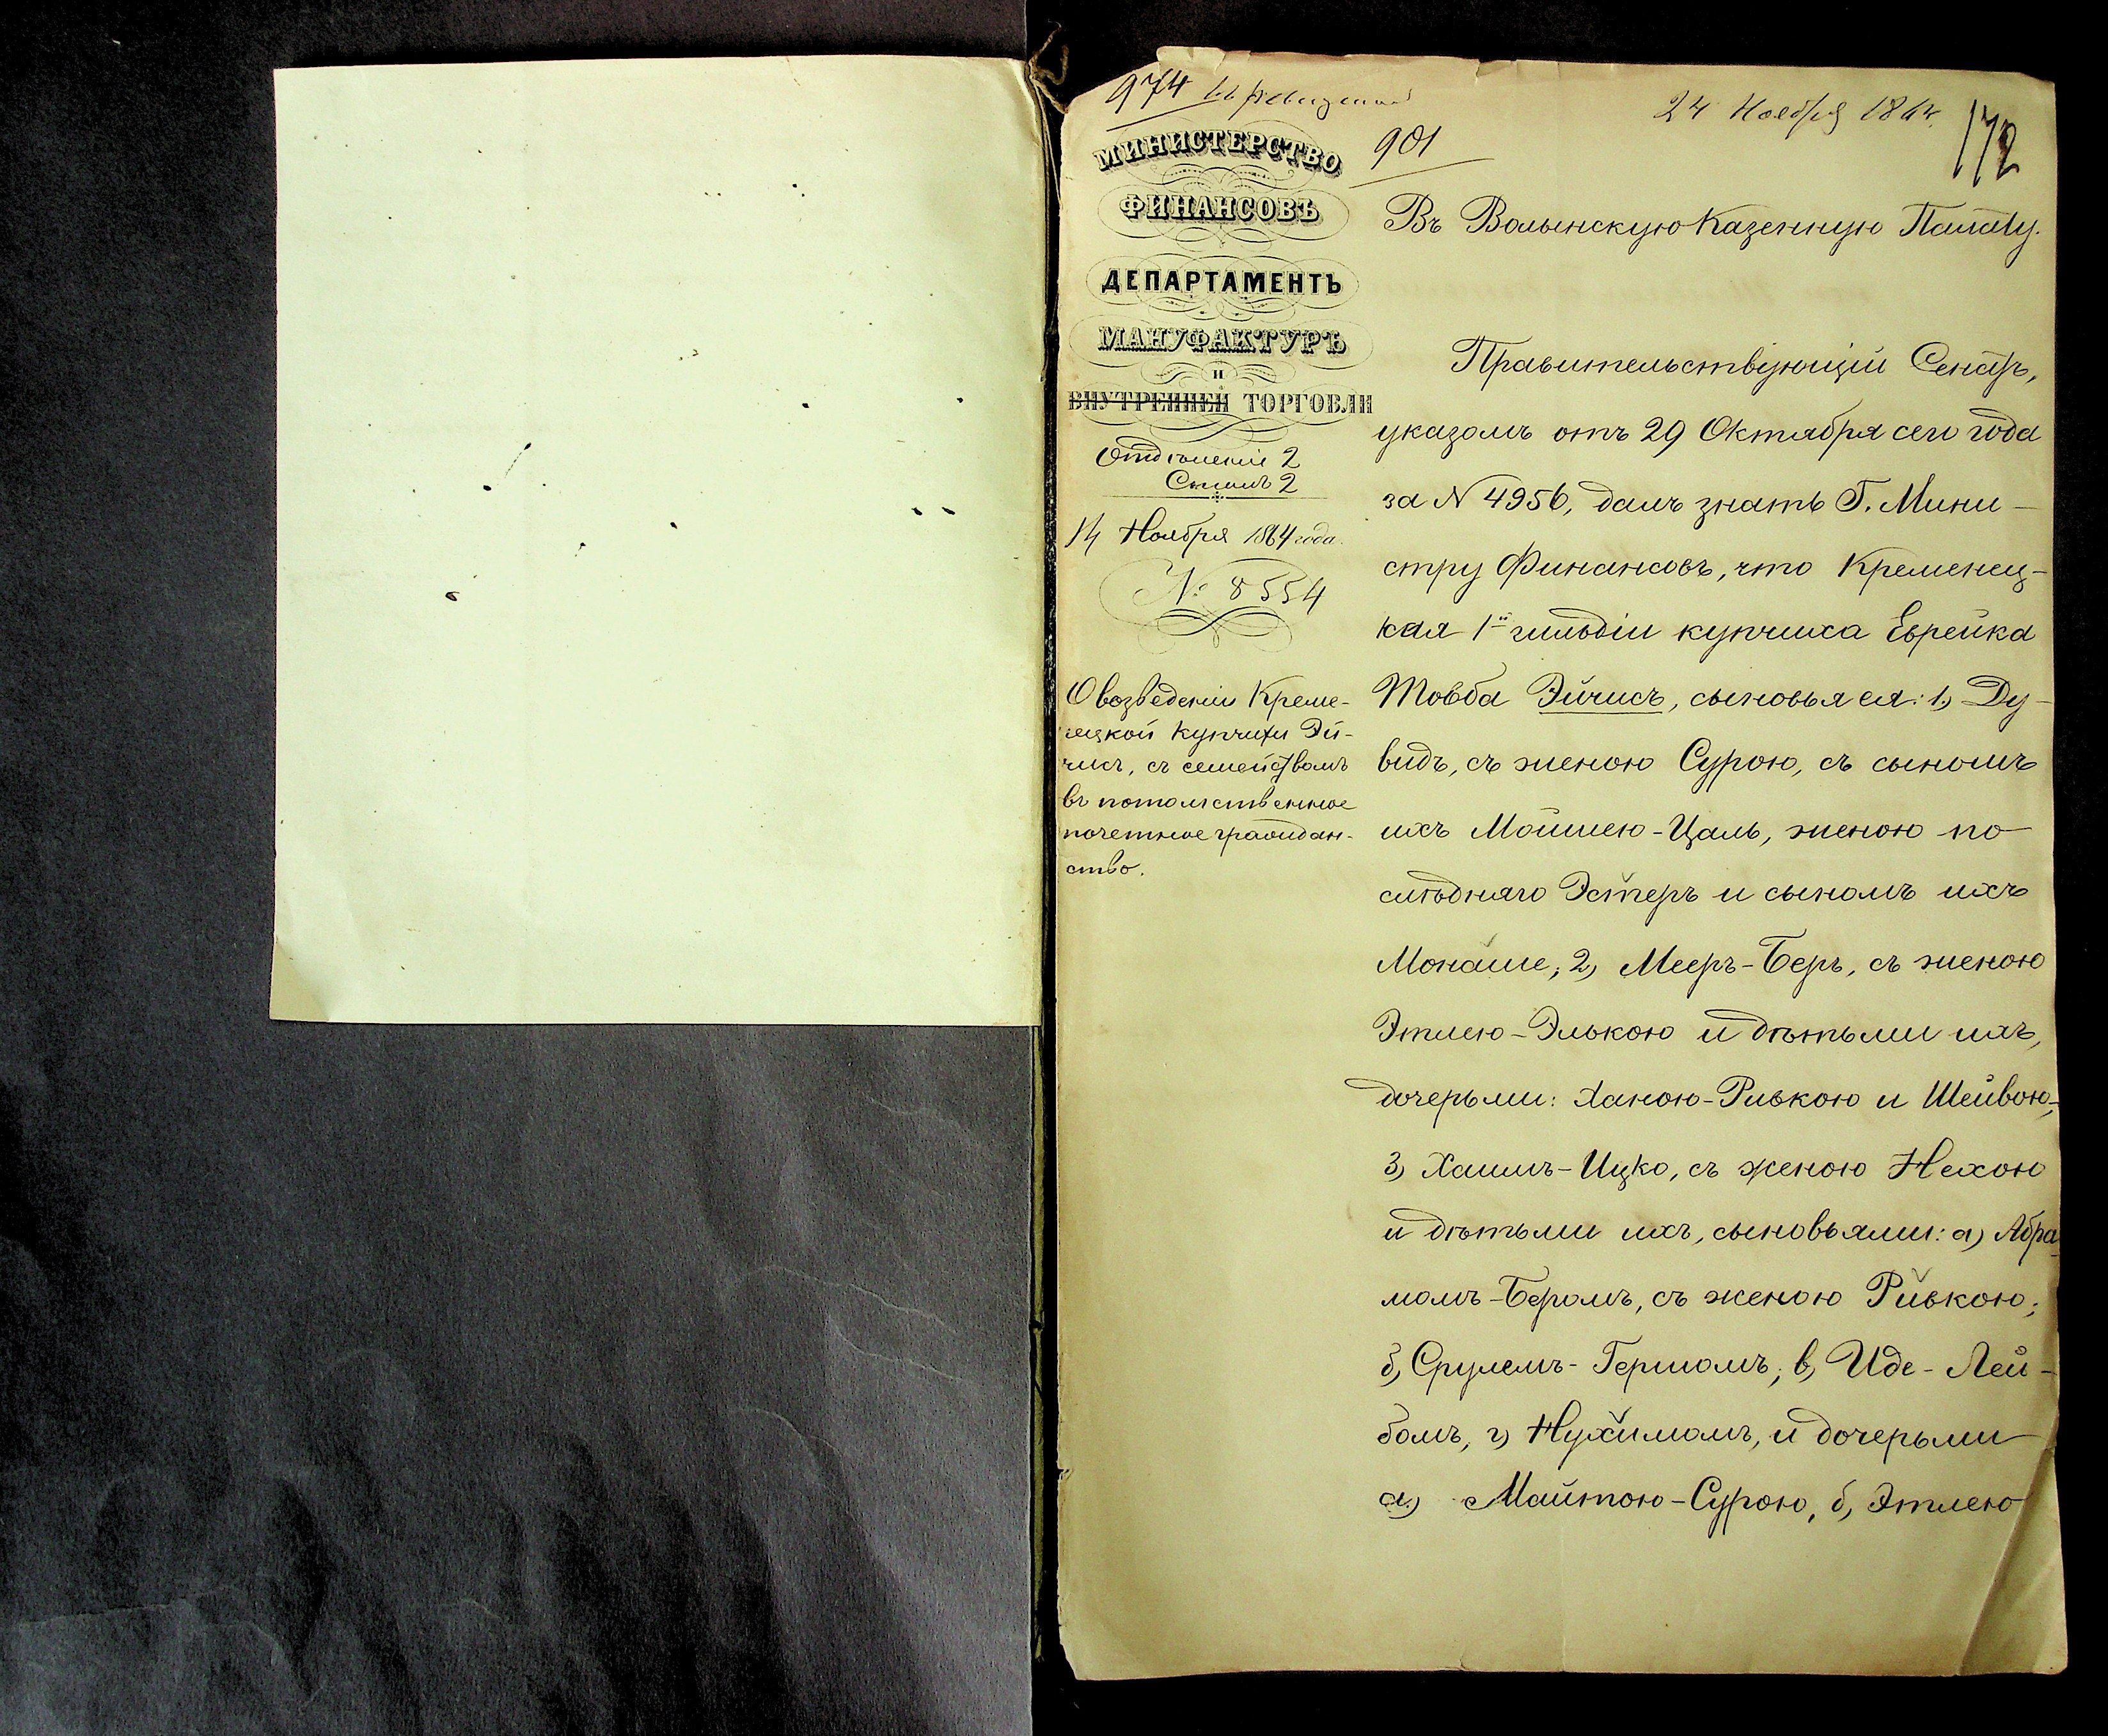 974
24 Ноября 1864
172
901
МИНИСТЕРСТВО
ФИНАНСОВЪ
ДЕПАРТАМЕНТЪ
МАНУФАКТУРЪ
И
ВНУТРЕННЕЙ ТОРГОВЛИ
Отдѣленіе 2
Столъ 2
14 Ноября 1864 года.
№ 8554
О возведеніи Креме-
нецкой купчихи Эй-
чисъ, съ семействомъ
въ потомственное
почетное граждан-
ство.
Въ Волынскую Казенную Палату.
Правительствующій Сенатъ,
указомъ отъ 29 Октября сего года
за N 4956, далъ знать Г. Мини-
стру Финансовъ, что Кременец-
кая 1й гильдіи купчиха Еврейка
Товба Эйчисъ, сыновья ея: 1) Ду-
видъ, съ женою Сурою, съ сыномъ
ихъ Мошкою-Цаль, женою по-
слѣдняго Эстеръ и сыномъ ихъ
Монаше; 2) Мееръ-Беръ, съ женою
Этлею-Элькою и дѣтьми ихъ,
дочерьми: Ханою-Ривкою и Шейвою;
3) Хаимъ-Ицко, съ женою Нехою
и дѣтьми ихъ, сыновьями: а) Абра-
момъ-Беромъ, съ женою Ривкою;
б) Срулемъ-Гершомъ; в) Иде-Лей-
бомъ, г) Нухимомъ, и дочерьми
а) Майтою-Сурою, б) Этлею